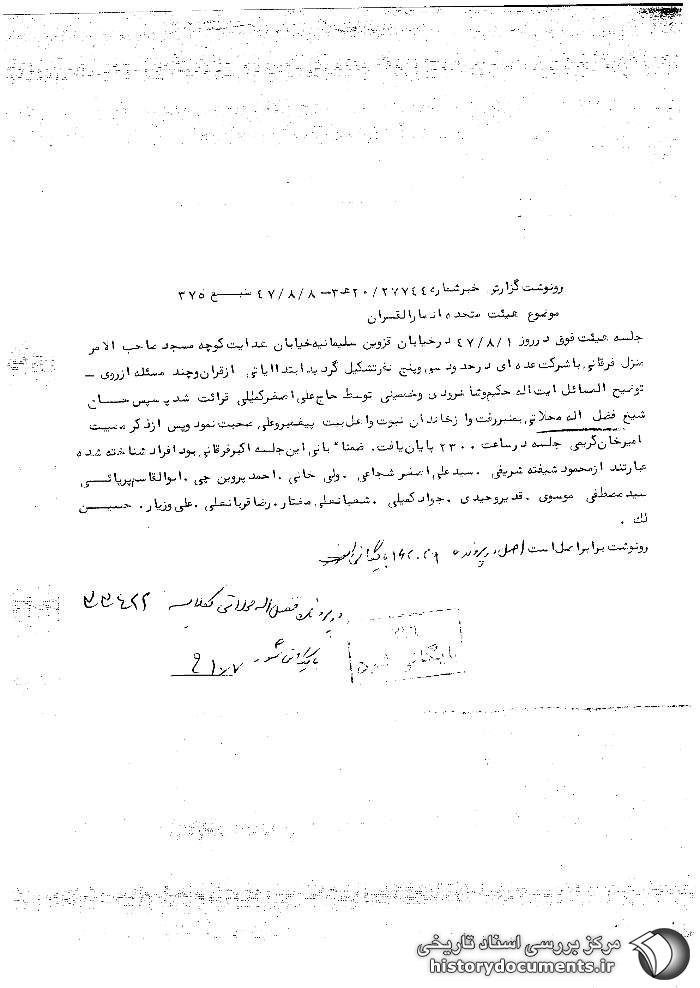 رونوشت گزارش خبر شماره ۲۰/۲۷۷۴۴ هـ ۳ – ۴۷/۸/۸ منبـــع ۳۷۵
موضوع هیئت متحده انصارالقسران
جلسه هیئت فوق در روز ۴۷/۸/۱ در خیابان قزوین سلیمانیه خیابان هدایت کوچه مسجد صاحب الامر
منزل فرقانی با شرکت عده ای در حدود سی وپنج نفر تشکیل گردید ابتدا ایاتی از قران و چند مسئله از روی –
توضیح المسائل ایت اله حکیم و شاهرودی و خمینی توسط حاج علی اصغر کملیلی قرائت شد سپس
شیخ فضل اله محلاتی بمنبر رفت و از خاندان نبوت و اهل بیت پیغمبر و علی صحبت نمود و پس از ذکر مصیبت
امیرخان کریمی جلسه در ساعت ۲۳۰۰ پایان یافت. ضمنا" بانی این جلسه اکبر فرقانی بود افراد شناخته شده
عبارتند از محمود شیفته شریفی . سید علی اصغر شجاعی . ولی خانی . احمد پروین چی . ابوالقاسم پریائـــی
سید مصطفی موسوی . قدیر وحیدی . جواد کمیلی . شعبانعلی مختار . رضا قربانعلی . علی وزیار . حسیــن
لك .
رونوشت برابر اصل است اصل در پرونده بایگانی است
در پرونده فضل اله محلاتی کلاسه ۳۳۴۲۲
بایگانی شود ۹/۱۰/۷
بایگانی شد
مرکز بررسی اسناد تاریخی
historydocuments.ir